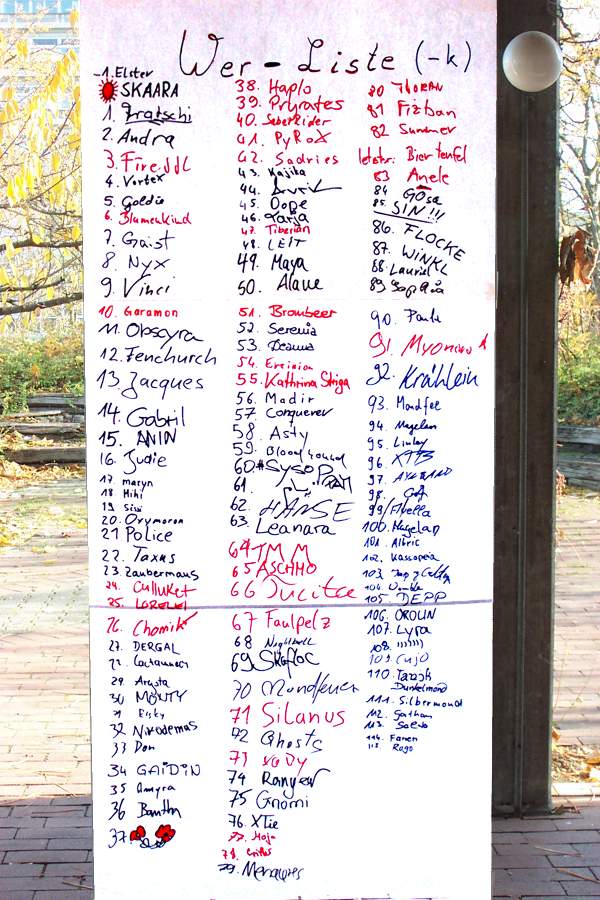 Wer-Liste (-k)
-1. Elster
SKAARA
1. Tratschi
2. Andra
3. Fire.ddl
4. Vortex
5. Goldie
6. Blumenkind
7. Gaist
8. Nyx
9. Vinci
10. Garamon
11. Obscyra
12. Fenchurch
13 Jacques
14. Gabril
15. ANIN
16. Judie
17 maryn
18 Mihi
19 Sisi
20. Oxymoron
21 Police
22. Taxus
23. Zaubermaus
24. Culluket
25. LORELEI
26. Chomik
27. DERGAL
28.
29. Arusta
30 MONTY
31 Eisky
32 Nikodemus
33 Don
34 GAIDIN
35 Amyra
36
37.
38. Haplo
39. Pryrates
40. SaberRider
41. PyRoX
42. Sadries
43. Kajika
44.
45. Dope
46. Tanja
47. Tiberian
48. LEIT
49. Maya
50. Alaue
51. Brombeer
52. Serenia
53.
54. Ereinion
55. Kathrina Striga
56. Madir
57 Conquerer
58. Asty
59. Bloodhound
60 #SYSOP
61.
62. HÄNSE
63. Leanara
64 TMM
65 ASCHHO
66 Tucitce
67 Faulpelz
68 Nightwolf
69. Skafloc
70 Mondfeuer
71 Silanus
72 Ghosts
73
74 Ranger
75 Gnomi
76. XTie
77. Moja
78.
79.
80 THORAN
81 Fizban
82 Summer
letzter: Bierteufel
83 Anele
84 Gösa
85. SIN!!!
86. FLOCKE
87. WINKL
88. Lauriel
89. Sophia
90. Paula
91. Myonium
92. Krählein
93. Mondfee
94. Magelan
95. Linlay
96. XTB
97.
98.
99 /Abella
100. Magelan
101. Albric
102. Kassopeia
103.
104.
105. DEPP
106. OROLIN
107. Lyra
108. )))))))
109. Cujo
110. Tarash
Dunkelmond
111. Silbermond
112. Gotham
113.
114. Fanen
115. Rago